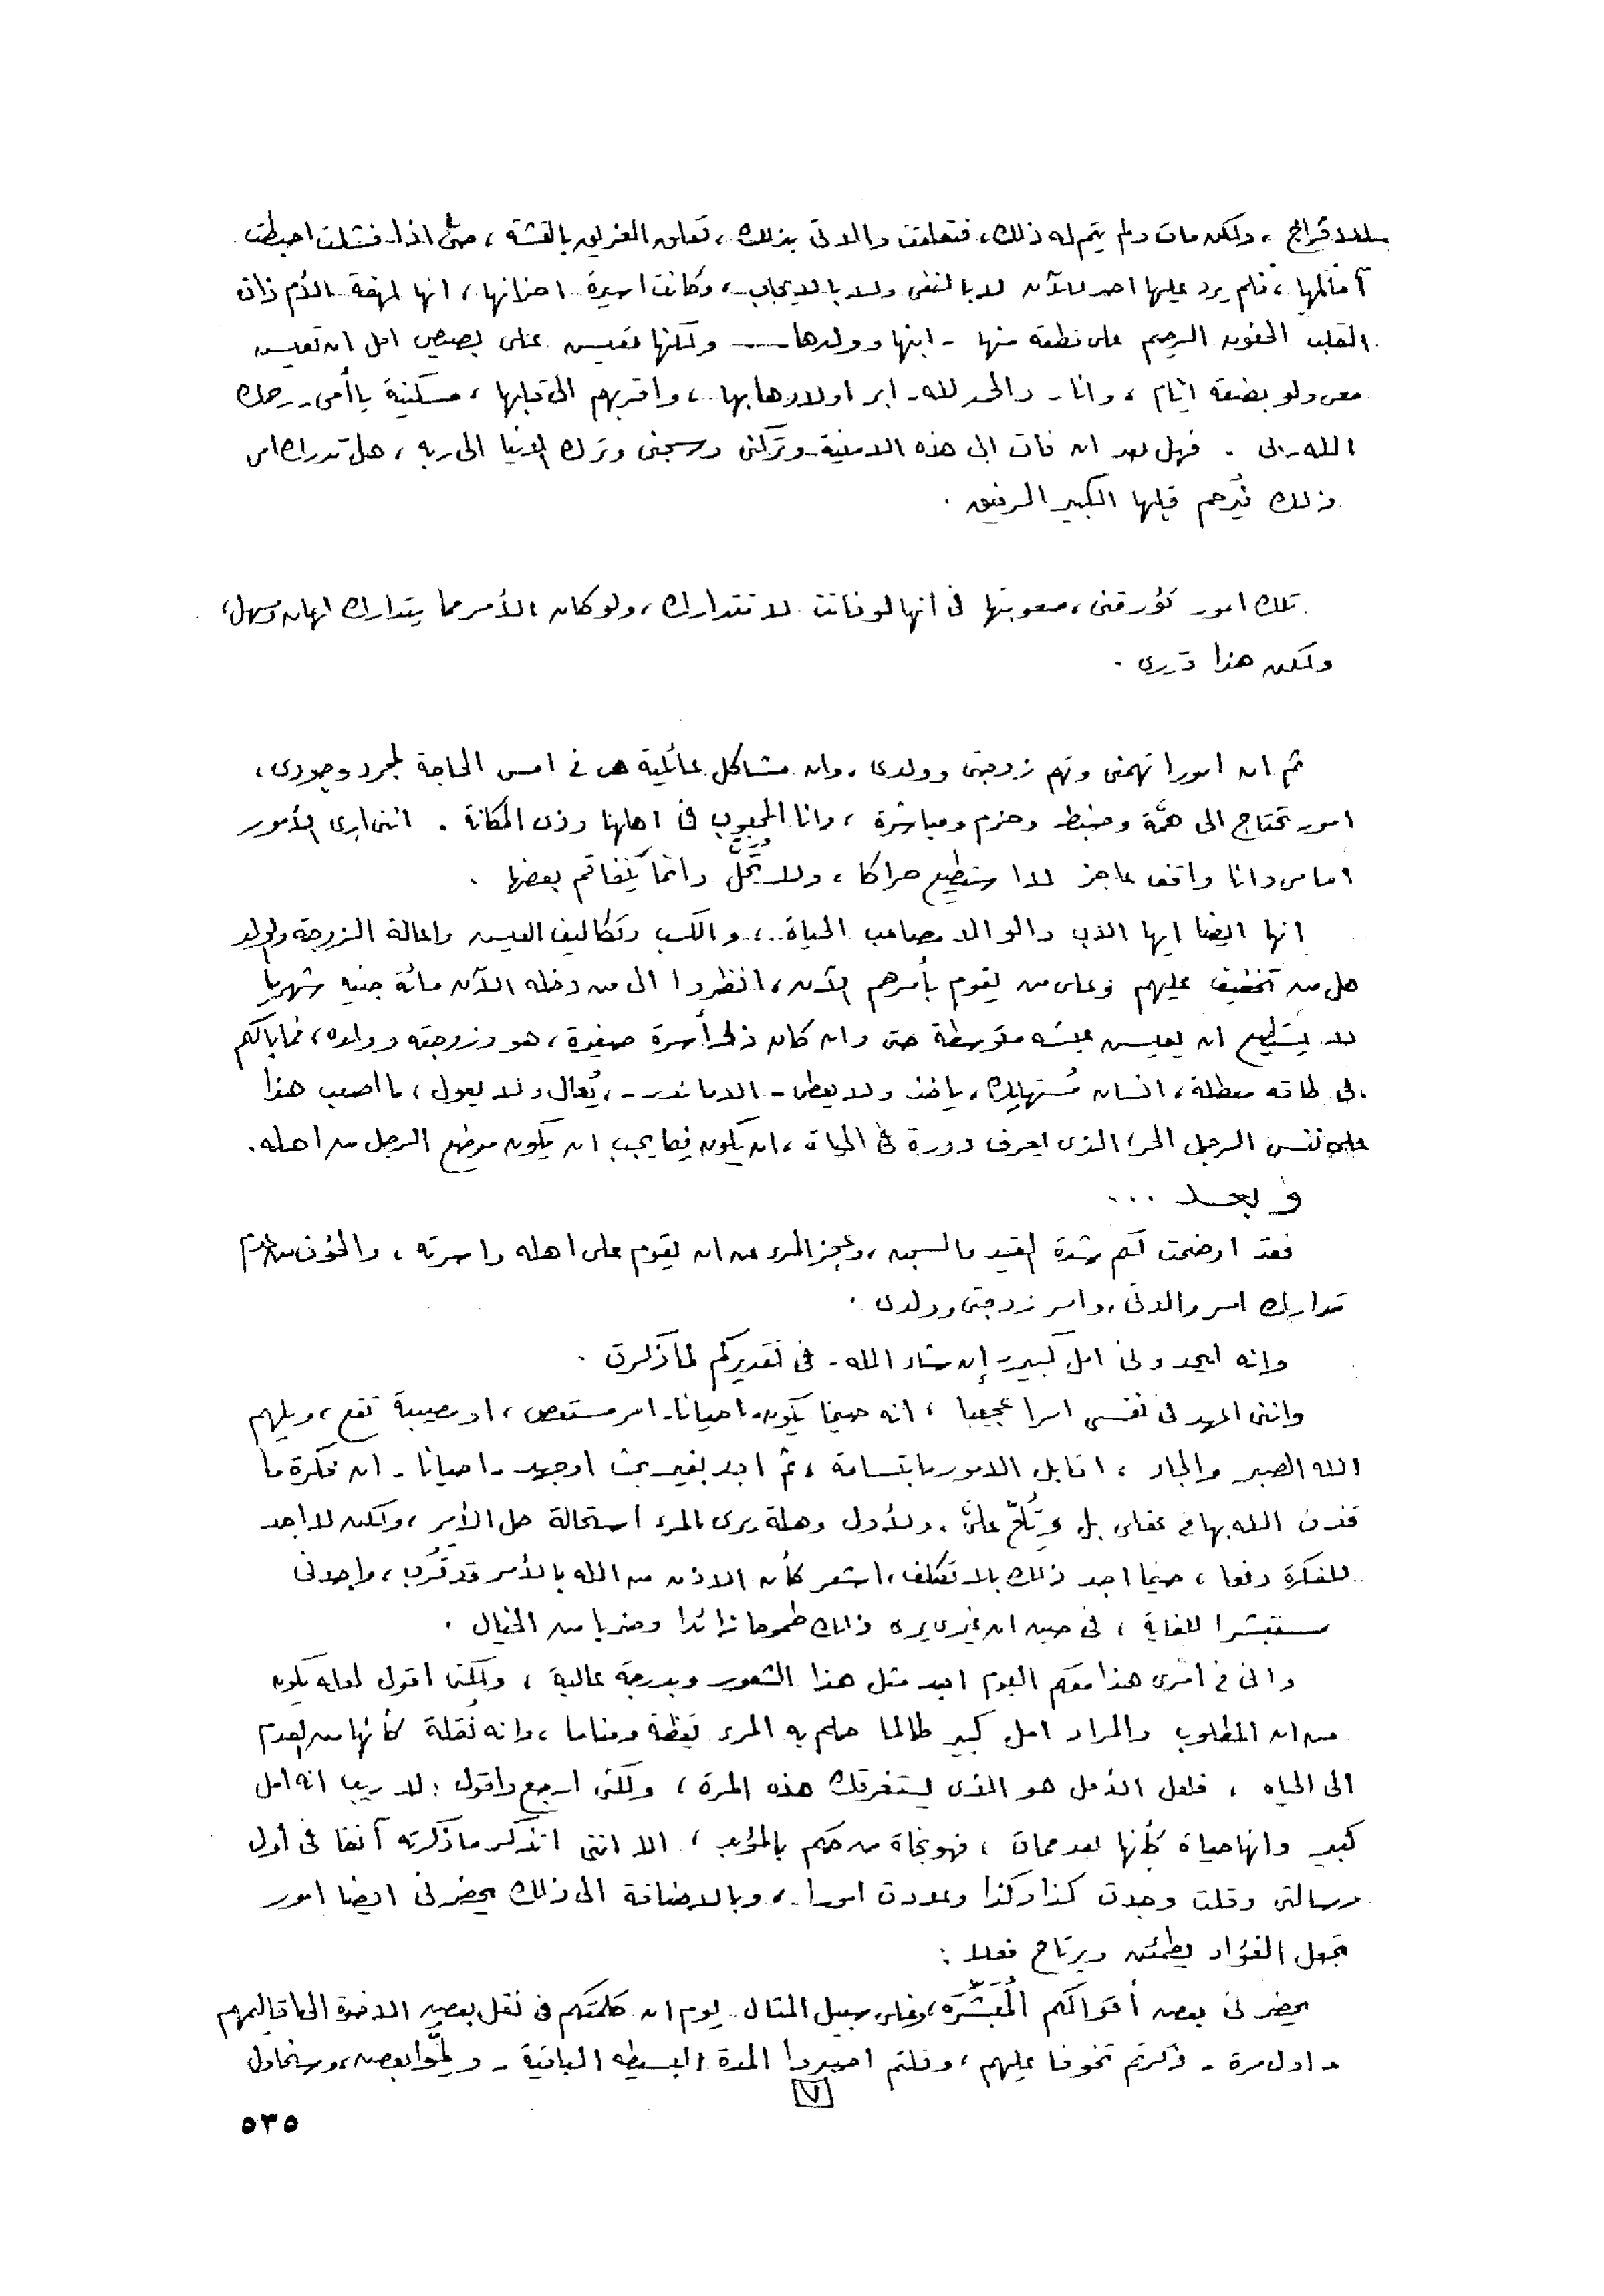 للافراج ، ولكن مات ولم يتم له ذلك، فتعلقت والدتى بذلك ، تعلق الغريق بالقشة ، حتى اذا فشلت احبطت
آمالها ، فلم يرد عليها احد للآن لا بالنفى ولا بالايجاب ، وكانت اسيرة احزانها ، انها لهفة الأم ذات
القلب الحنون الرحيم على قطعة منها - ابنها وولدها ــــ ولكنها تعيس على بصيص امل ان تعيس
معى ولو بضعة ايام ، وانا - والحمد لله - ابر اولادها بها ، واقربهم الى قلبها ، مسكينة يا أمى - رحمك
الله - ابى . فهل بعد ان فات ابى هذه الامنية وتركنى وسجنى وترك الدنيا الى ربه ، هل تدرك امى
ذلك فيُرحم قلبها الكبير الرقيق .
تلك امور تؤرقنى ، صعوبتها فى انها لو فاتت لا تتدارك ، ولو كان الأمر مما يتدارك لهان وسهل ،
ولكن هذا قدرى .
ثم ان امورا تهمنى وتهم زوجتى وولدى ، وان مشاكل عائلية هى فى امس الحاجة لمجرد وجودى ،
امور تحتاج الى همَّة وضبط وحزم ومباشرة ، وانا المحبوب فى اهلها وذى المكانة . اننى ارى الأمور
أمامى وانا واقف عاجز لا استطيع حراكا ، ولا تُحَلّ وانما يتفاقم بعضها .
انها ايضا ايها الاب والوالد مصاعب الحياة .، والكسب وتكاليف العيس واعالة الزوجة والولد
هل من تخفيف عليهم وعلى من يقوم بأمرهم الآن ، انظروا الى من دخله الآن مائة جنيه شهريا
لا يستطيع ان يعيس عيشه متوسطة حتى وان كان ذا أسرة صغيرة ، هو وزوجته وولده ، فما بالكم
بى طاقه معطلة ، انسان مُستهلِك ، يأخذ ولا يعطى - الا ما ندر - ، يُعال ولا يعول ، ما اصعب هذا
على نفس الرجل الحر ، الذى يعرف دورة فى الحياة ، ان يكون فيما يجب ان يكون موضع الرجل من اهله .
وبعد ...
فقد اوضحت لكم شدة القيد والسجن ، وعجز المرء عن ان يقوم على اهله واسرته ، والخوف من عدم
تدارك امر والدتى ، وامر زوجتى وولدى .
وانه ليحدونى امل كبير - إن شاء الله - فى تقديركم لما ذكرت .
واننى اجد فى نفسى امرا عجيبا ، انه حينما يكون - احيانا - امر مستعص ، او مصيبة تقع ، ويلهم
الله الصبر والجلد ، اقابل الامور بابتسامة ، ثم اجد بغير بحث او جهد - احيانا - ان فكرة ما
قذف الله بها فى عقلى بل وتُلحّ علىّ . ولأول وهلة يرى المرء استحالة حل الأمر ، ولكن لا اجد
للفكرة دفعا ، حينما اجد ذلك بلا تكلف ، اشعر كأن الاذن من الله بالأمر قد قرب ، واجدنى
مستبشرا للغاية ، فى حين ان غيرى يرى ذلك طموحا زائدا وضربا من الخيال .
وانى فى امرى هذا معكم اليوم اجد مثل هذا الشعور وبدرجة عالية ، ولكنى اقول لعله يكون
من ان المطلوب والمراد امل كبير طالما حلم به المرء يقظة ومناما ، وانه نُقلة كأنها من العدم
الى الحياه ، فلعل الأمل هو الذى يستغرقك هذه المرة ، ولكنى ارجع واقول : لا ريب انه امل
كبير وانها حياة كأنها بعد ممات ، فهو نجاة من حكم بالمؤبد ، الا اننى اتذكر ما ذكرته آنفا فى أول
رسالتى وقلت وجدت كذا وكذا وعددت امورا ، وبالاضافة الى ذلك يحضرنى ايضا امور
تجعل الفؤاد يطمئن ويرتاح فعلا :
يحضرنى بعض أقوالكم المُبَشِّرَة ، وعلى سبيل المثال يوم ان كلمتكم فى نقل بعض الاخوة الى اقاليمهم
- اول مرة - ذكرتم تخوفا عليهم ، وقلتم اصبروا المدة البسيطه الباقية - وليهدأ بعض ، وسنحاول
٧
٥٣٥